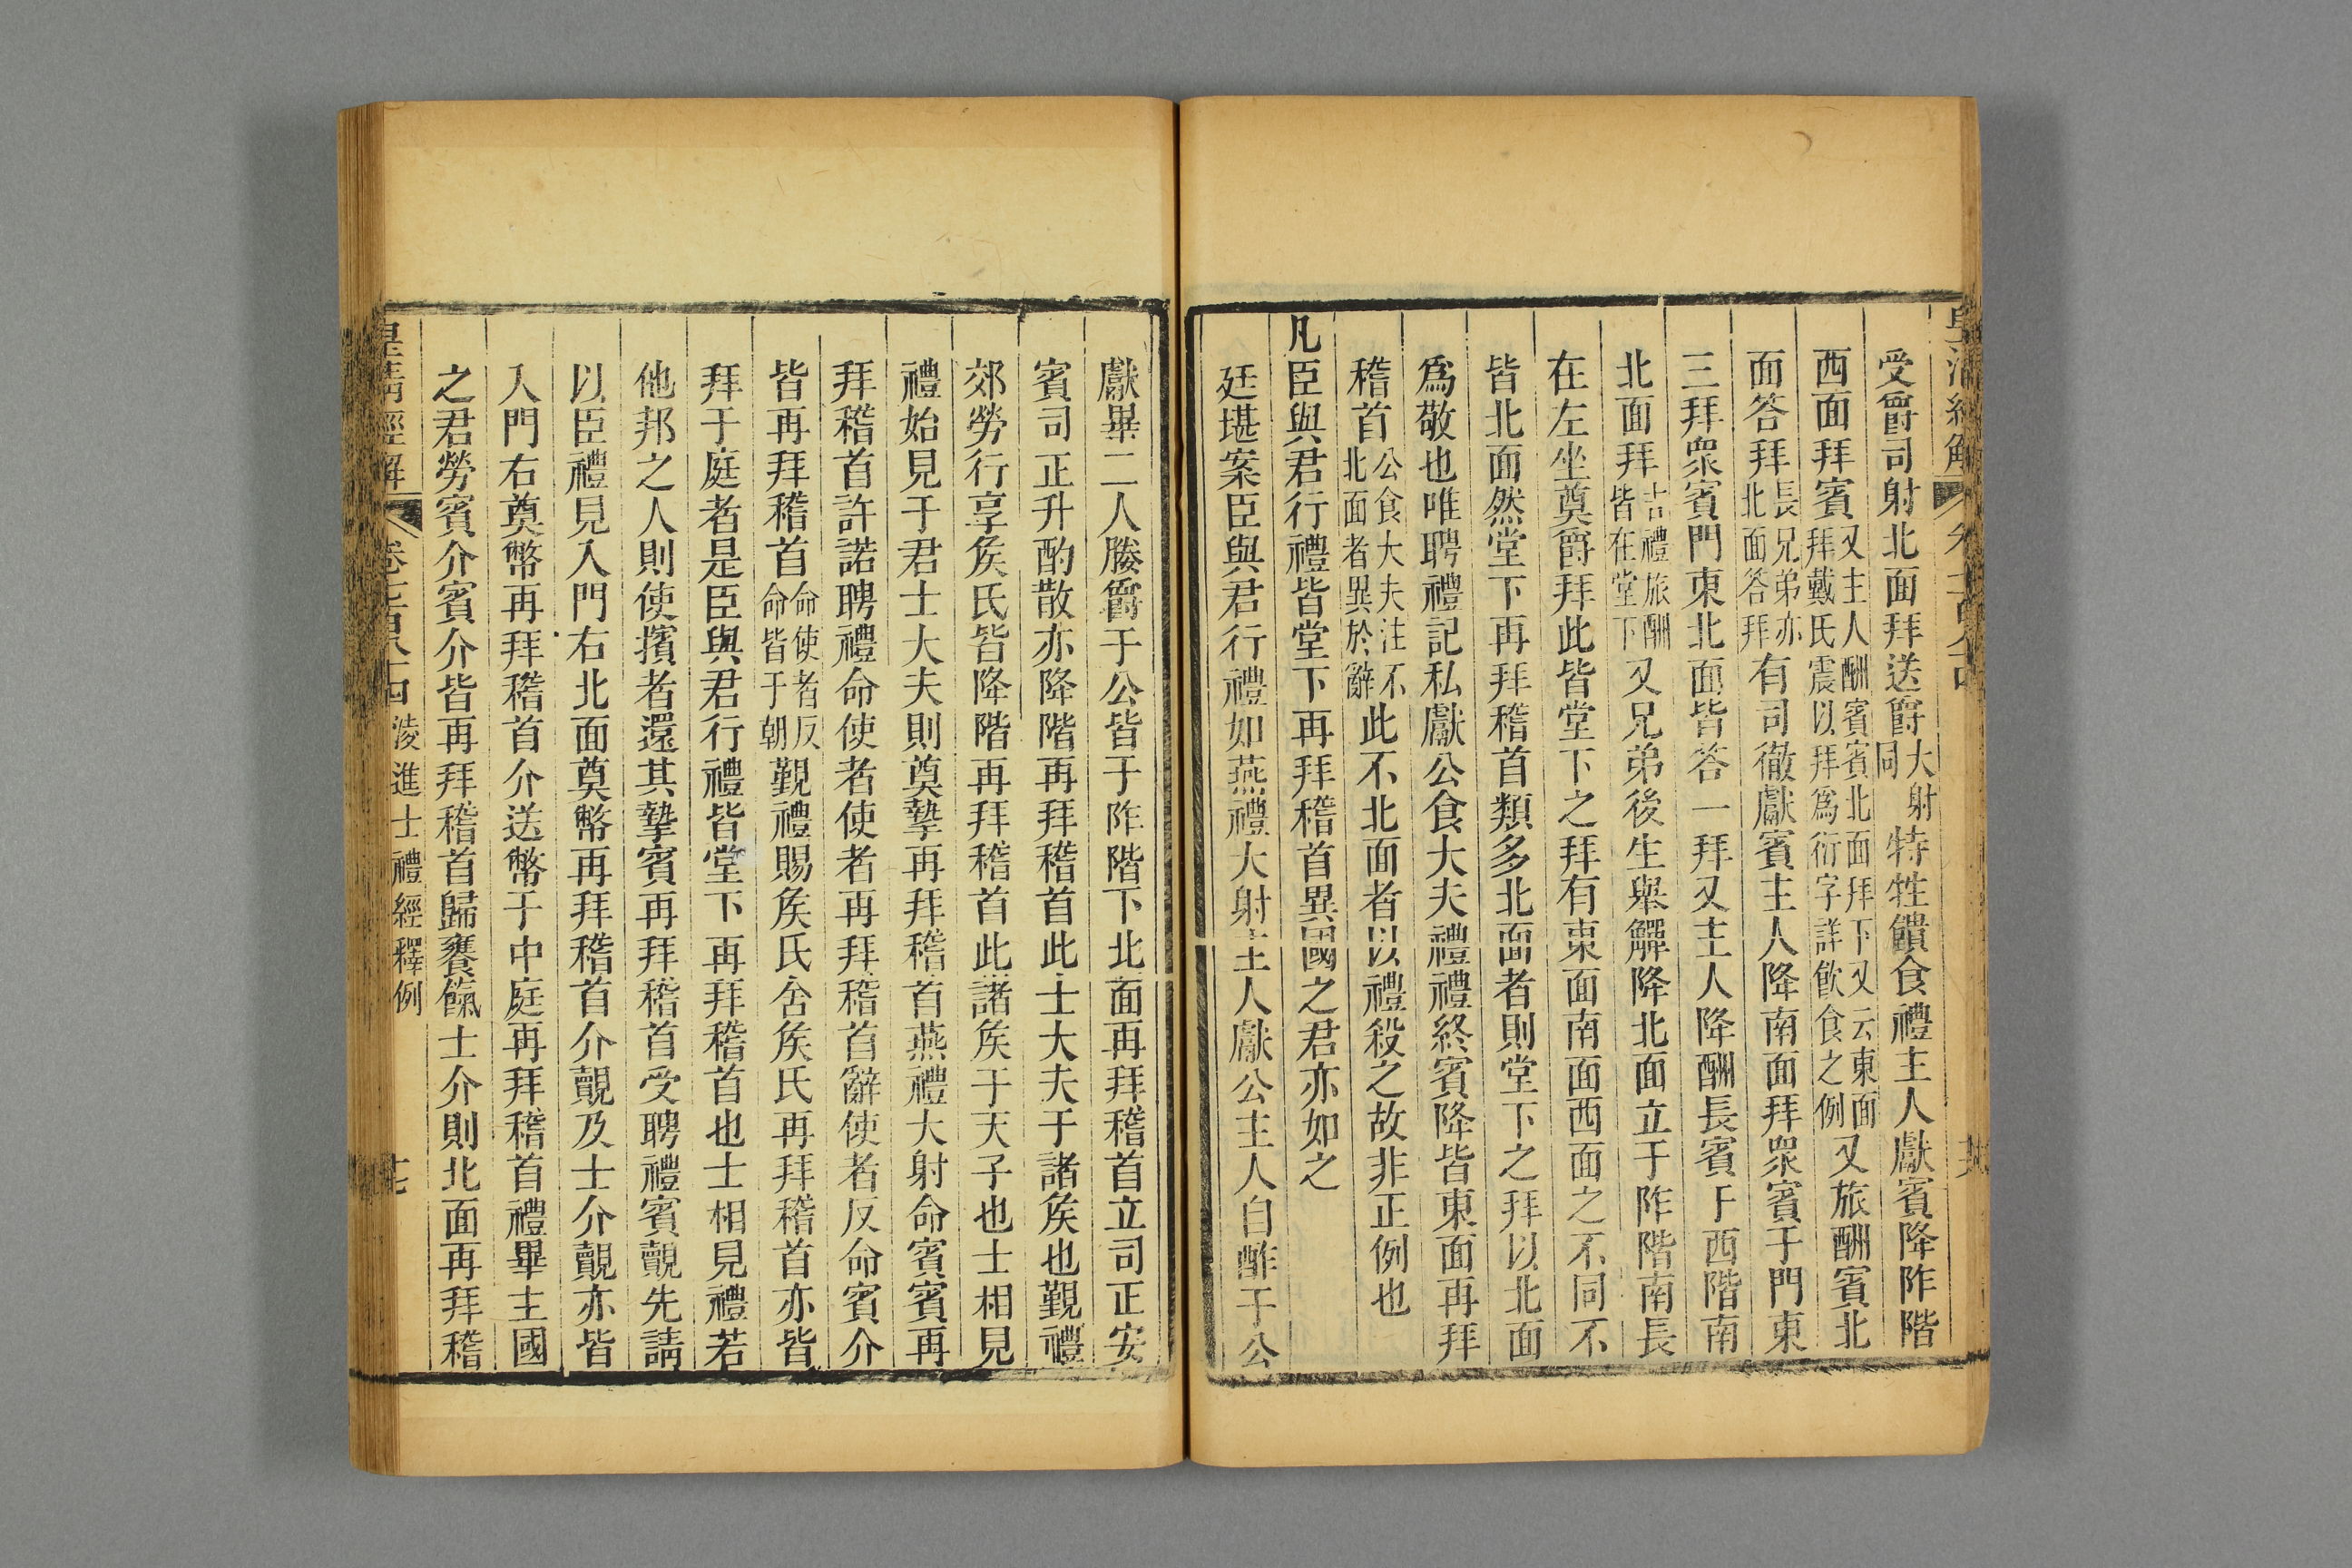 受爵司射北面拜送爵大射同特牲饋食禮主人獻賓降阼階
西面拜賓又主人酬賓賓北面拜下又云東面拜戴氏震以拜爲衍字詳飮食之例又旅酬賓北
面答拜長兄弟亦北面答拜有司徹獻賓主人降南面拜衆賓于門東
三拜衆賓門東北面皆答一拜又主人降酬長賓于西階南
北面拜吉禮旅酬皆在堂下又兄弟後生舉觶降北面立于阼階南長
在左坐奠爵拜此皆堂下之拜有東面南面西面之不同不
皆北面然堂下再拜稽首類多北面者則堂下之拜以北面
爲敬也唯聘禮記私獻公食大夫禮禮終賓降皆東面再拜
稽首公食大夫注不北面者異於辭此不北面者以禮殺之故非正例也
凡臣與君行禮皆堂下再拜稽首異國之君亦如之
廷堪案臣與君行禮如燕禮大射主人獻公主人自酢于公
獻畢二人媵爵于公皆于阼階下北面再拜稽首立司正安
賓司正升酌散亦降階再拜稽首此士大夫于諸矦也覲禮
郊勞行享矦氏皆降階再拜稽首此諸矦于天子也士相見
禮始見于君士大夫則奠摯再拜稽首燕禮大射命賓賓再
拜稽首許諾聘禮命使者使者再拜稽首辭使者反命賓介
皆再拜稽首命使者反命皆于朝覲禮賜矦氏舍矦氏再拜稽首亦皆
拜于庭者是臣與君行禮皆堂下再拜稽首也士相見禮若
他邦之人則使擯者還其摯賓再拜稽首受聘禮賓覿先請
以臣禮見入門右北面奠幣再拜稽首介覿及士介覿亦皆
入門右奠幣再拜稽首介送幣于中庭再拜稽首禮畢主國
之君勞賓介賓介皆再拜稽首歸饔餼士介則北面再拜稽
皇淸經解 卷七百八十四 淩進士禮經釋例 十七